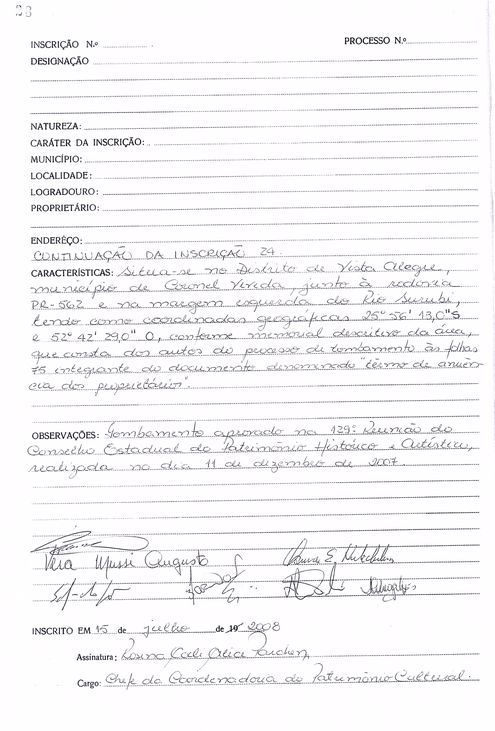 23
INSCRIÇÃO N.º PROCESSO N.º
DESIGNAÇÃO
NATUREZA:
CARÁTER DA INSCRIÇÃO:
MUNICÍPIO:
LOCALIDADE:
LOGRADOURO:
PROPRIETÁRIO:
ENDERÊÇO:
CONTINUAÇÃO DA INSCRIÇÃO 24.
CARACTERÍSTICAS: Situa-se no Distrito de Vista Alegre,
município de Coronel Vivida, junto à rodovia
PR-562 e na margem esquerda do Rio
tendo como coordenadas geográficas 25º 56' 13,0" S
e 52º 42' 29,0" O, conforme memorial descritivo da área,
que consta dos autos do processo de tombamento às folhas
75 integrante do documento denominado "termo de anuên-
cia dos proprietários".
OBSERVAÇÕES: Tombamento aprovado na 139ª Reunião do
Conselho Estadual do Patrimônio Histórico e Artístico,
realizada no dia 11 de dezembro de 2007.
Vera Mussi Augusto
INSCRITO EM 15 de julho de 2008
Assinatura: Rosina
Cargo: Chefe da Coordenadoria do Patrimônio Cultural.